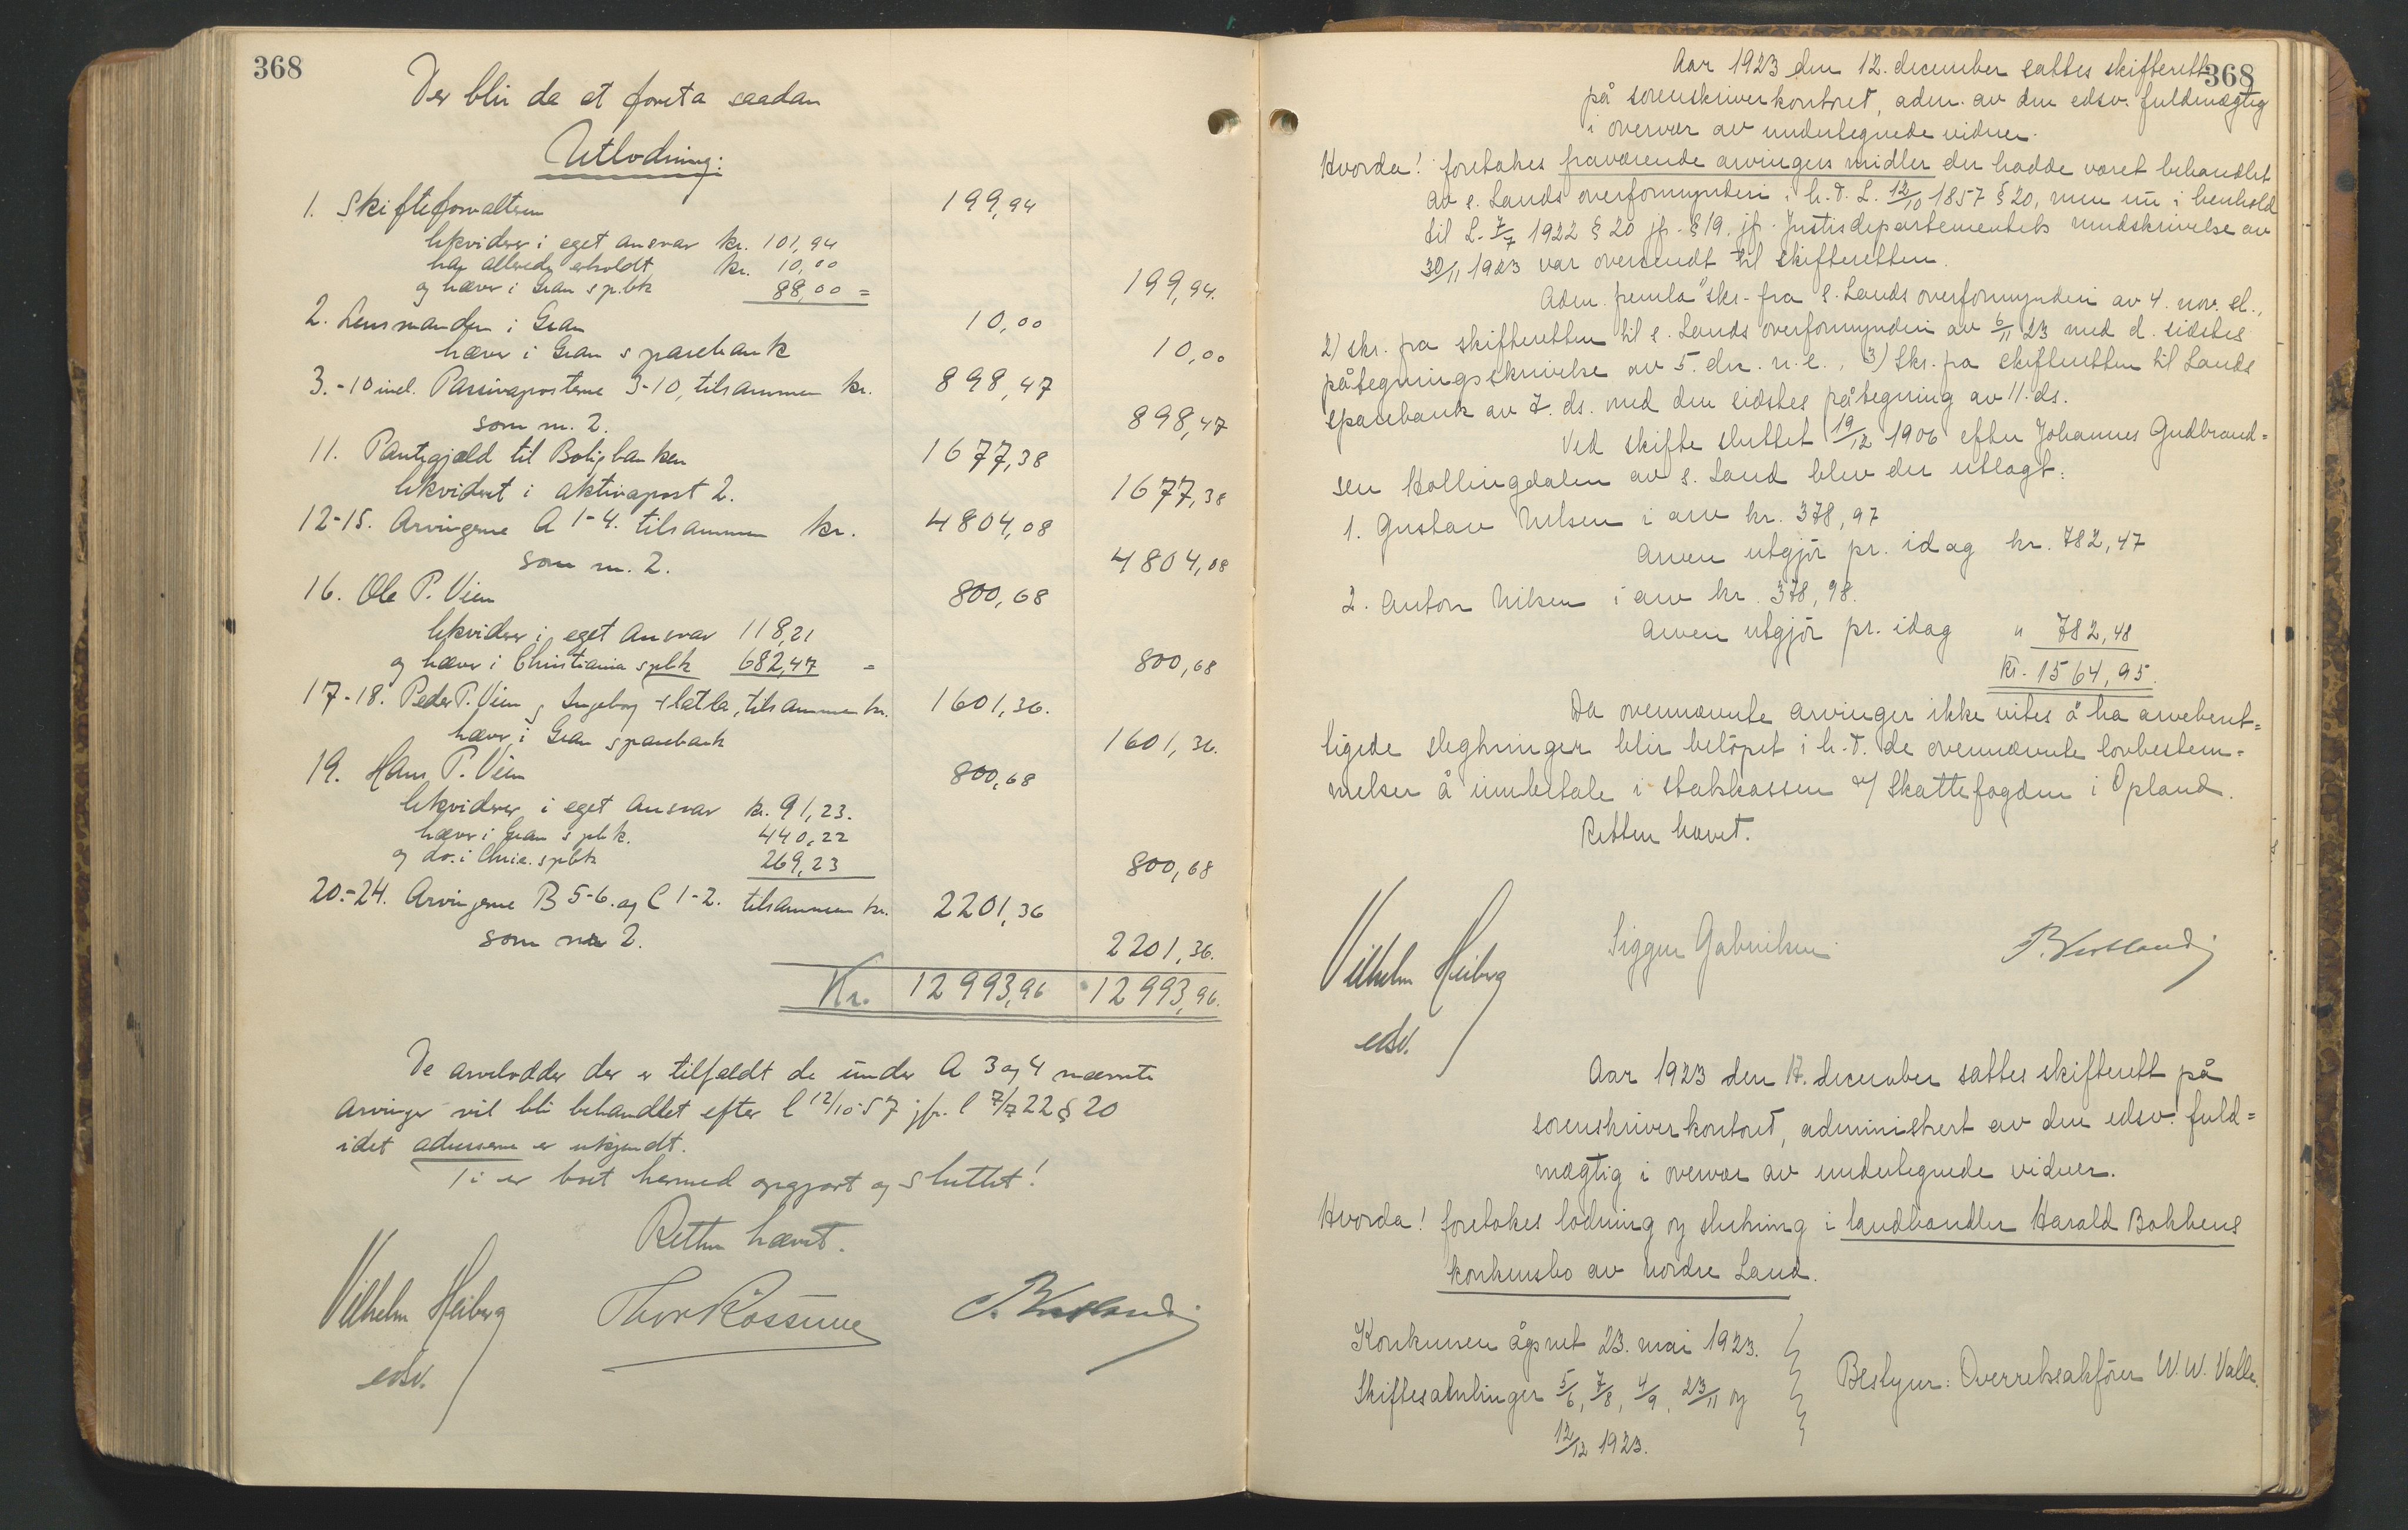 368
Der blir da at foreta saadan
Utlodning:
1. Skifteforvalteren 199,94
likviderer i eget ansvar kr. 101,94
har allerede erholdt kr. 10,00
og hæver i Gran sp.bk 88,00 = 199,94.
2. Lensmanden i Gran 10,00
hæver i Gran sparebank 10,00
3.-10 incl. Passivaposterne 3-10, tilsammen kr. 898,47
som nr. 2. 898,47
11. Pantegjæld til Boligbanken 1677,38
likvidert i aktivapost 2. 1677,38
12-15. Arvingerne A 1-4. tilsammen kr. 4804,08
som nr. 2. 4804,08
16. Ole P. Vien 800,68
likviderer i eget ansvar 118,21
og hæver i Christiania spbk 682,47 = 800,68
17-18. Peder P. Vien og Ingeborg Flatla, tilsammen kr. 1601,36.
hæver i Gran sparebank 1601,36.
19. Hans P. Vien 800,68
likviderer i eget ansvar kr. 91,23.
hæver i Gran spbk. 440,22
og do. i Chria. spbk 269,23 800,68
20.-24. Arvingerne B 5-6. og C 1-2. tilsammen kr. 2201,36
som nr 2. 2201,36.
Kr. 12993,96 12993,96.
De arvelodder der er tilfaldt de under A 3 og 4 nævnte
arvinger vil bli behandlet efter l 12/10-57 jfr. l 7/7 22 § 20
idet adresserne er ukjendt.
Ti er boet hermed opgjort og sluttet!
Retten hævet.
Vilhelm Heiberg
edsv.
368
Aar 1923 den 12. december sattes skifterett
på sorenskriverkontoret, adm. av den edsv. fuldmægtig
i overvær av undertegnede vidner.
Hvorda! foretakes fraværende arvingers midler der hadde været behandlet
av s. Lands overformynderi i h.t. L. 12/10 1857 § 20, men nu i henhold
til L. 7/7 1922 § 20 jf. § 19, jf. Justisdepartementets rundskrivelse av
30/11 1923 var oversendt til skifteretten.
Adm. fremla skr. fra s. Lands overformynderi av 4. nov. d.,
2) skr. fra skifteretten til s. Lands overformynderi av 6/11 23 med d. sidstes
påtegningsskrivelse av 5. dec. n.e., 3) Skr. fra skifteretten til Lands
sparebank av 7. ds. med den sidstes påtegning av 11. ds.
Ved skifte sluttet 19/12 1906 efter Johannes Gudbrand=
sen Hallingdalen av s. Land blev der utlagt:
1. Gustav Nilsen i arv kr. 378,97
arven utgjör pr. idag kr. 782,47
2. Anton Nilsen i arv kr. 378,98.
arven utgjör pr. idag " 782,48
Kr. 1564,95.
Da ovennævnte arvinger ikke vites å ha arveberet=
tigede slegtninger blir belöpet i h.t. de ovennævnte lovbestem=
melser å innbetale i statskassen v/ Skattefogden i Opland.
Retten hævet.
Vilhelm Heiberg
edsv.
Aar 1923 den 17. december sattes skifterett på
sorenskriverkontoret, administrert av den edsv. fuld=
mægtig i overvær av undertegnede vidner.
Hvorda! foretakes lodning og slutning i landhandler Harald Bakkens
konkursbo av nordre Land.
Konkursen åpnet 23. mai 1923.
Skiftesamlinger 5/6, 7/8, 4/9, 23/11 og
12/12 1923.
Bestyrer: Overretssakförer W. W. Valle.